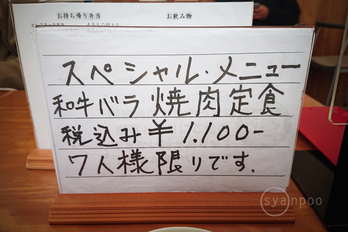 お持ち帰り弁当 お飲み物
スペシャル・メニュー
和牛バラ焼肉定食
税込み¥1.100-
7人様限りです.
syanpoo